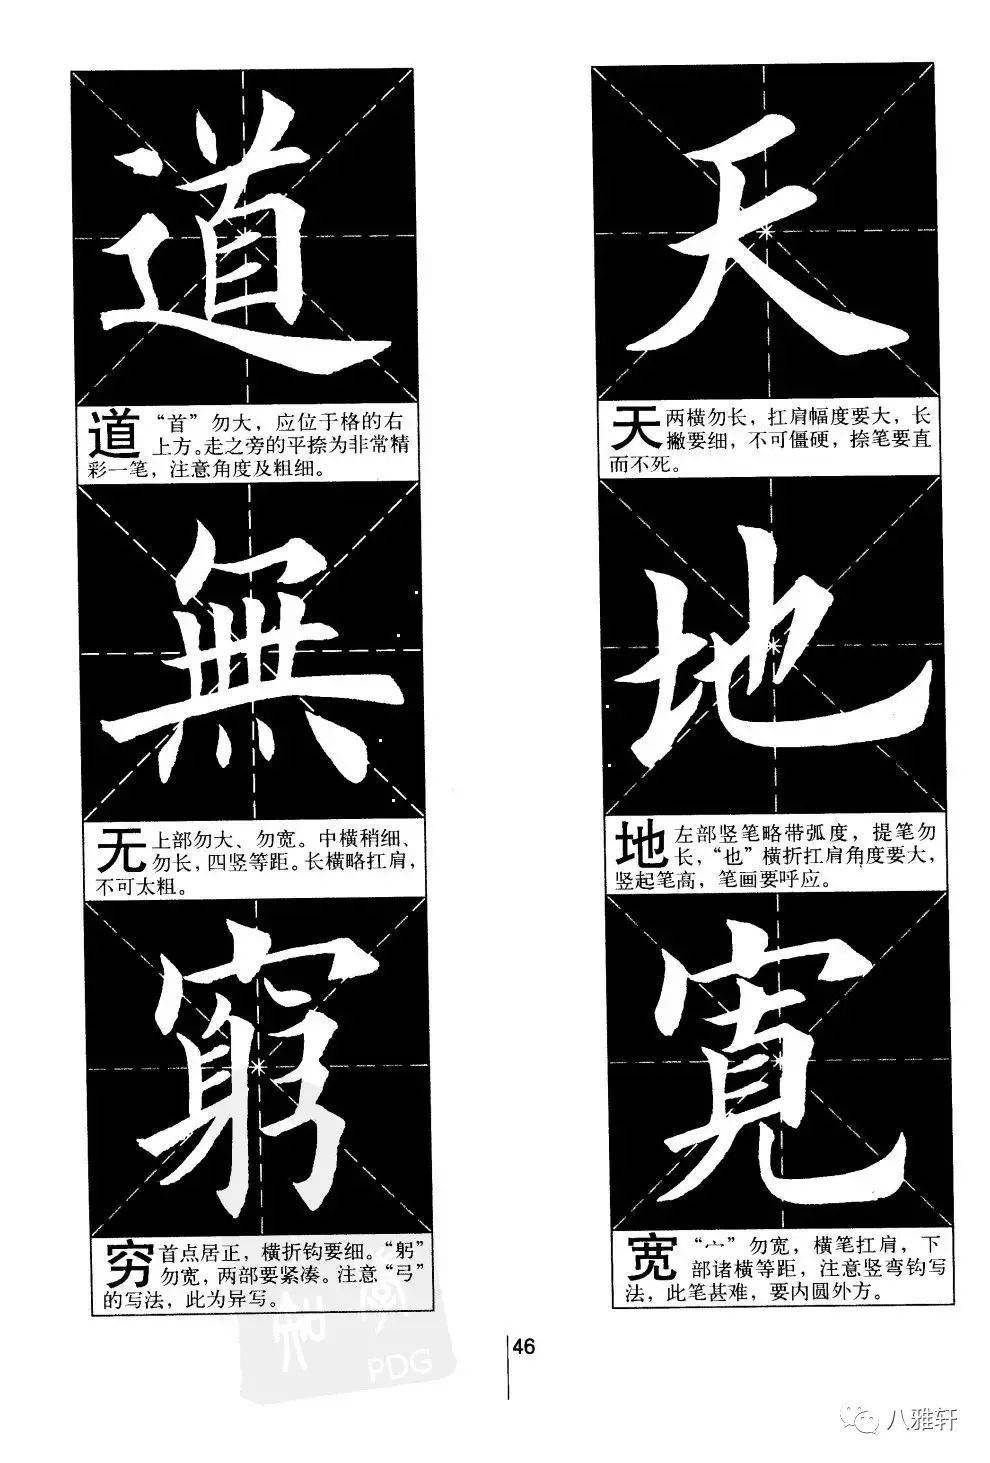 天
天 两横勿长，扛肩幅度要大，长
撇要细，不可僵硬，捺笔要直
而不死。
地
地 左部竖笔略带弧度，提笔勿
长，“也”横折扛肩角度要大，
竖起笔高，笔画要呼应。
寛
宽 “宀”勿宽，横笔扛肩，下
部诸横等距，注意竖弯钩写
法，此笔甚难，要内圆外方。
道
道 “首”勿大，应位于格的右
上方。走之旁的平捺为非常精
彩一笔，注意角度及粗细。
無
无 上部勿大、勿宽。中横稍细、
勿长，四竖等距。长横略扛肩，
不可太粗。
窮
穷 首点居正，横折钩要细。“躬”
勿宽，两部要紧凑。注意“弓”
的写法，此为异写。
PDG
46
八雅轩